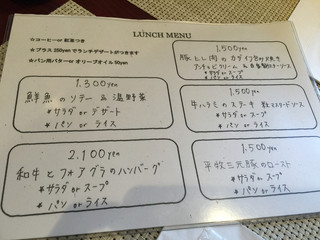 LUNCH MENU
☆コーヒーor 紅茶つき
★プラス 200yen でランチデザートがつきます
★パン用バターor オリーブオイル 50yen
1,300yen
鮮魚のソテー & 温野菜
*サラダ or デザート
*パン or ライス
2,100yen
和牛とフォアグラのハンバーグ
*サラダ or スープ
*パン or ライス
1,500yen
豚ヒレ肉のカダイフ包み焼き
アンチョビクリーム &
*サラダ or スープ
*パン or ライス
1,500yen
牛ハラミのステーキ 粒マスタードソース
*サラダ or スープ
*パン or ライス
1,500yen
平牧三元豚のロースト
*サラダ or スープ
*パン or ライス